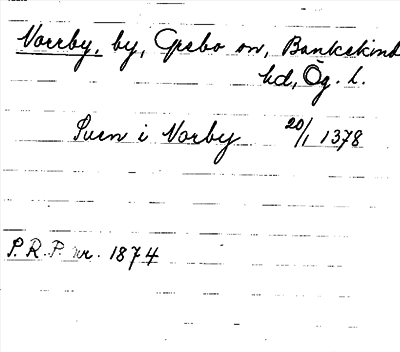 Norrby, by, Grebo sn, Bankekind
hd, Ög. l.
Sven i Norby 20/1 1378
P.R.P. nr. 1874